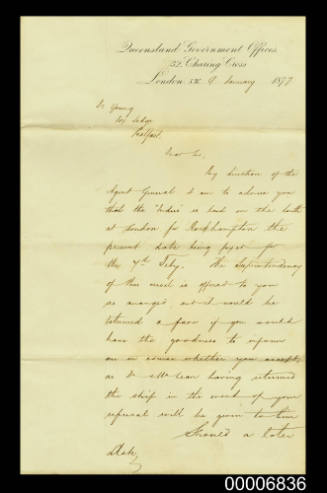 Queensland Government Offices
32 Charing Cross
London S.W. 9 January 1877
Dr Young
Lodge
Belfast
Dear Sir,
By direction of the
Agent General I am to advise you
that the "Indus" is laid on the berth
at London for Rockhampton the
present date being fixed for
the 7th Feby. The Superintendency
of this vessel is offered to you
as arranged, and it would be
esteemed a favor if you would
have the goodness to inform
me in course whether you accept,
as Dr McLean having returned
the ship in the event of your
refusal will be given to him
Should a later
date
00006836